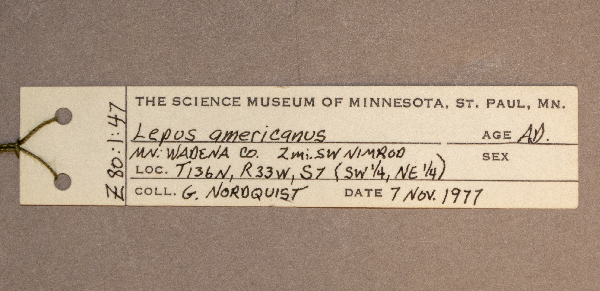 THE SCIENCE MUSEUM OF MINNESOTA, ST. PAUL, MN.
Lepus americanus AGE AD.
MN: WADENA CO. 2 mi. SW NIMROD SEX
LOC. T136N, R33W, S7 (SW 1/4, NE 1/4)
COLL. G. NORDQUIST DATE 7 NOV. 1977
Z80:1:47